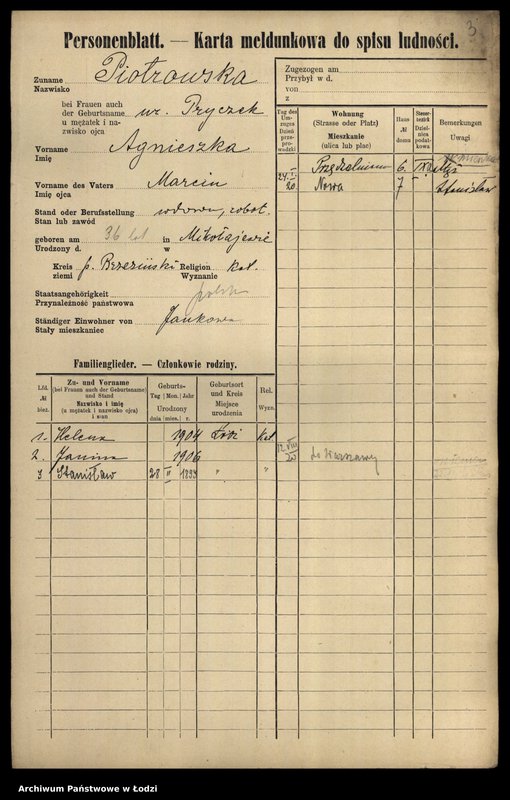 3
Personenblatt. — Karta meldunkowa do spisu ludności.
Zuname
Nazwisko
Piotrowska
bei Frauen auch
der Geburtsname
u mężatek i na-
zwisko ojca
ur. Pryczek
Vorname
Imię
Agnieszka
Vorname des Vaters
Imię ojca
Marcin
Stand oder Berufsstellung
Stan lub zawód
wdowa, robot.
geboren am
Urodzony d.
36 lat
in
w
Mikołajewie
Kreis
ziemi
p. Brzeziński
Religion
Wyznanie
kat.
Staatsangehörigkeit
Przynależność państwowa
polska
Ständiger Einwohner von
Stały mieszkaniec
Jankowa
Zugezogen am
Przybył w d.
von
z
Tag des
Um-
zuges
Dzień
prze-
prowadzki
Wohnung
(Strasse oder Platz)
Mieszkanie
(ulica lub plac)
Haus
№
domu
Steuer-
bezirk
Dziel-
nica
podat-
kowa
Bemerkungen
Uwagi
Przędzalniana 6. IX
24. I. 20. Nowa 7 Stanisław
Familienglieder. — Członkowie rodziny.
Lfd.
№
bież.
Zu- und Vorname
(bei Frauen auch der Geburtsname)
und Stand
Nazwisko i imię
(u mężatek i nazwisko ojca)
i stan
Geburts-
Tag Mon. Jahr
Urodzony
dnia mies. r.
Geburtsort
und Kreis
Miejsce
urodzenia
Rel.
Wyzn.
1. Helena 1904 Łódź Kat
2. Janina 1906 12 VIII 20 do Warszawy
3 Stanisław 28 II 1893 " "
Archiwum Państwowe w Łodzi